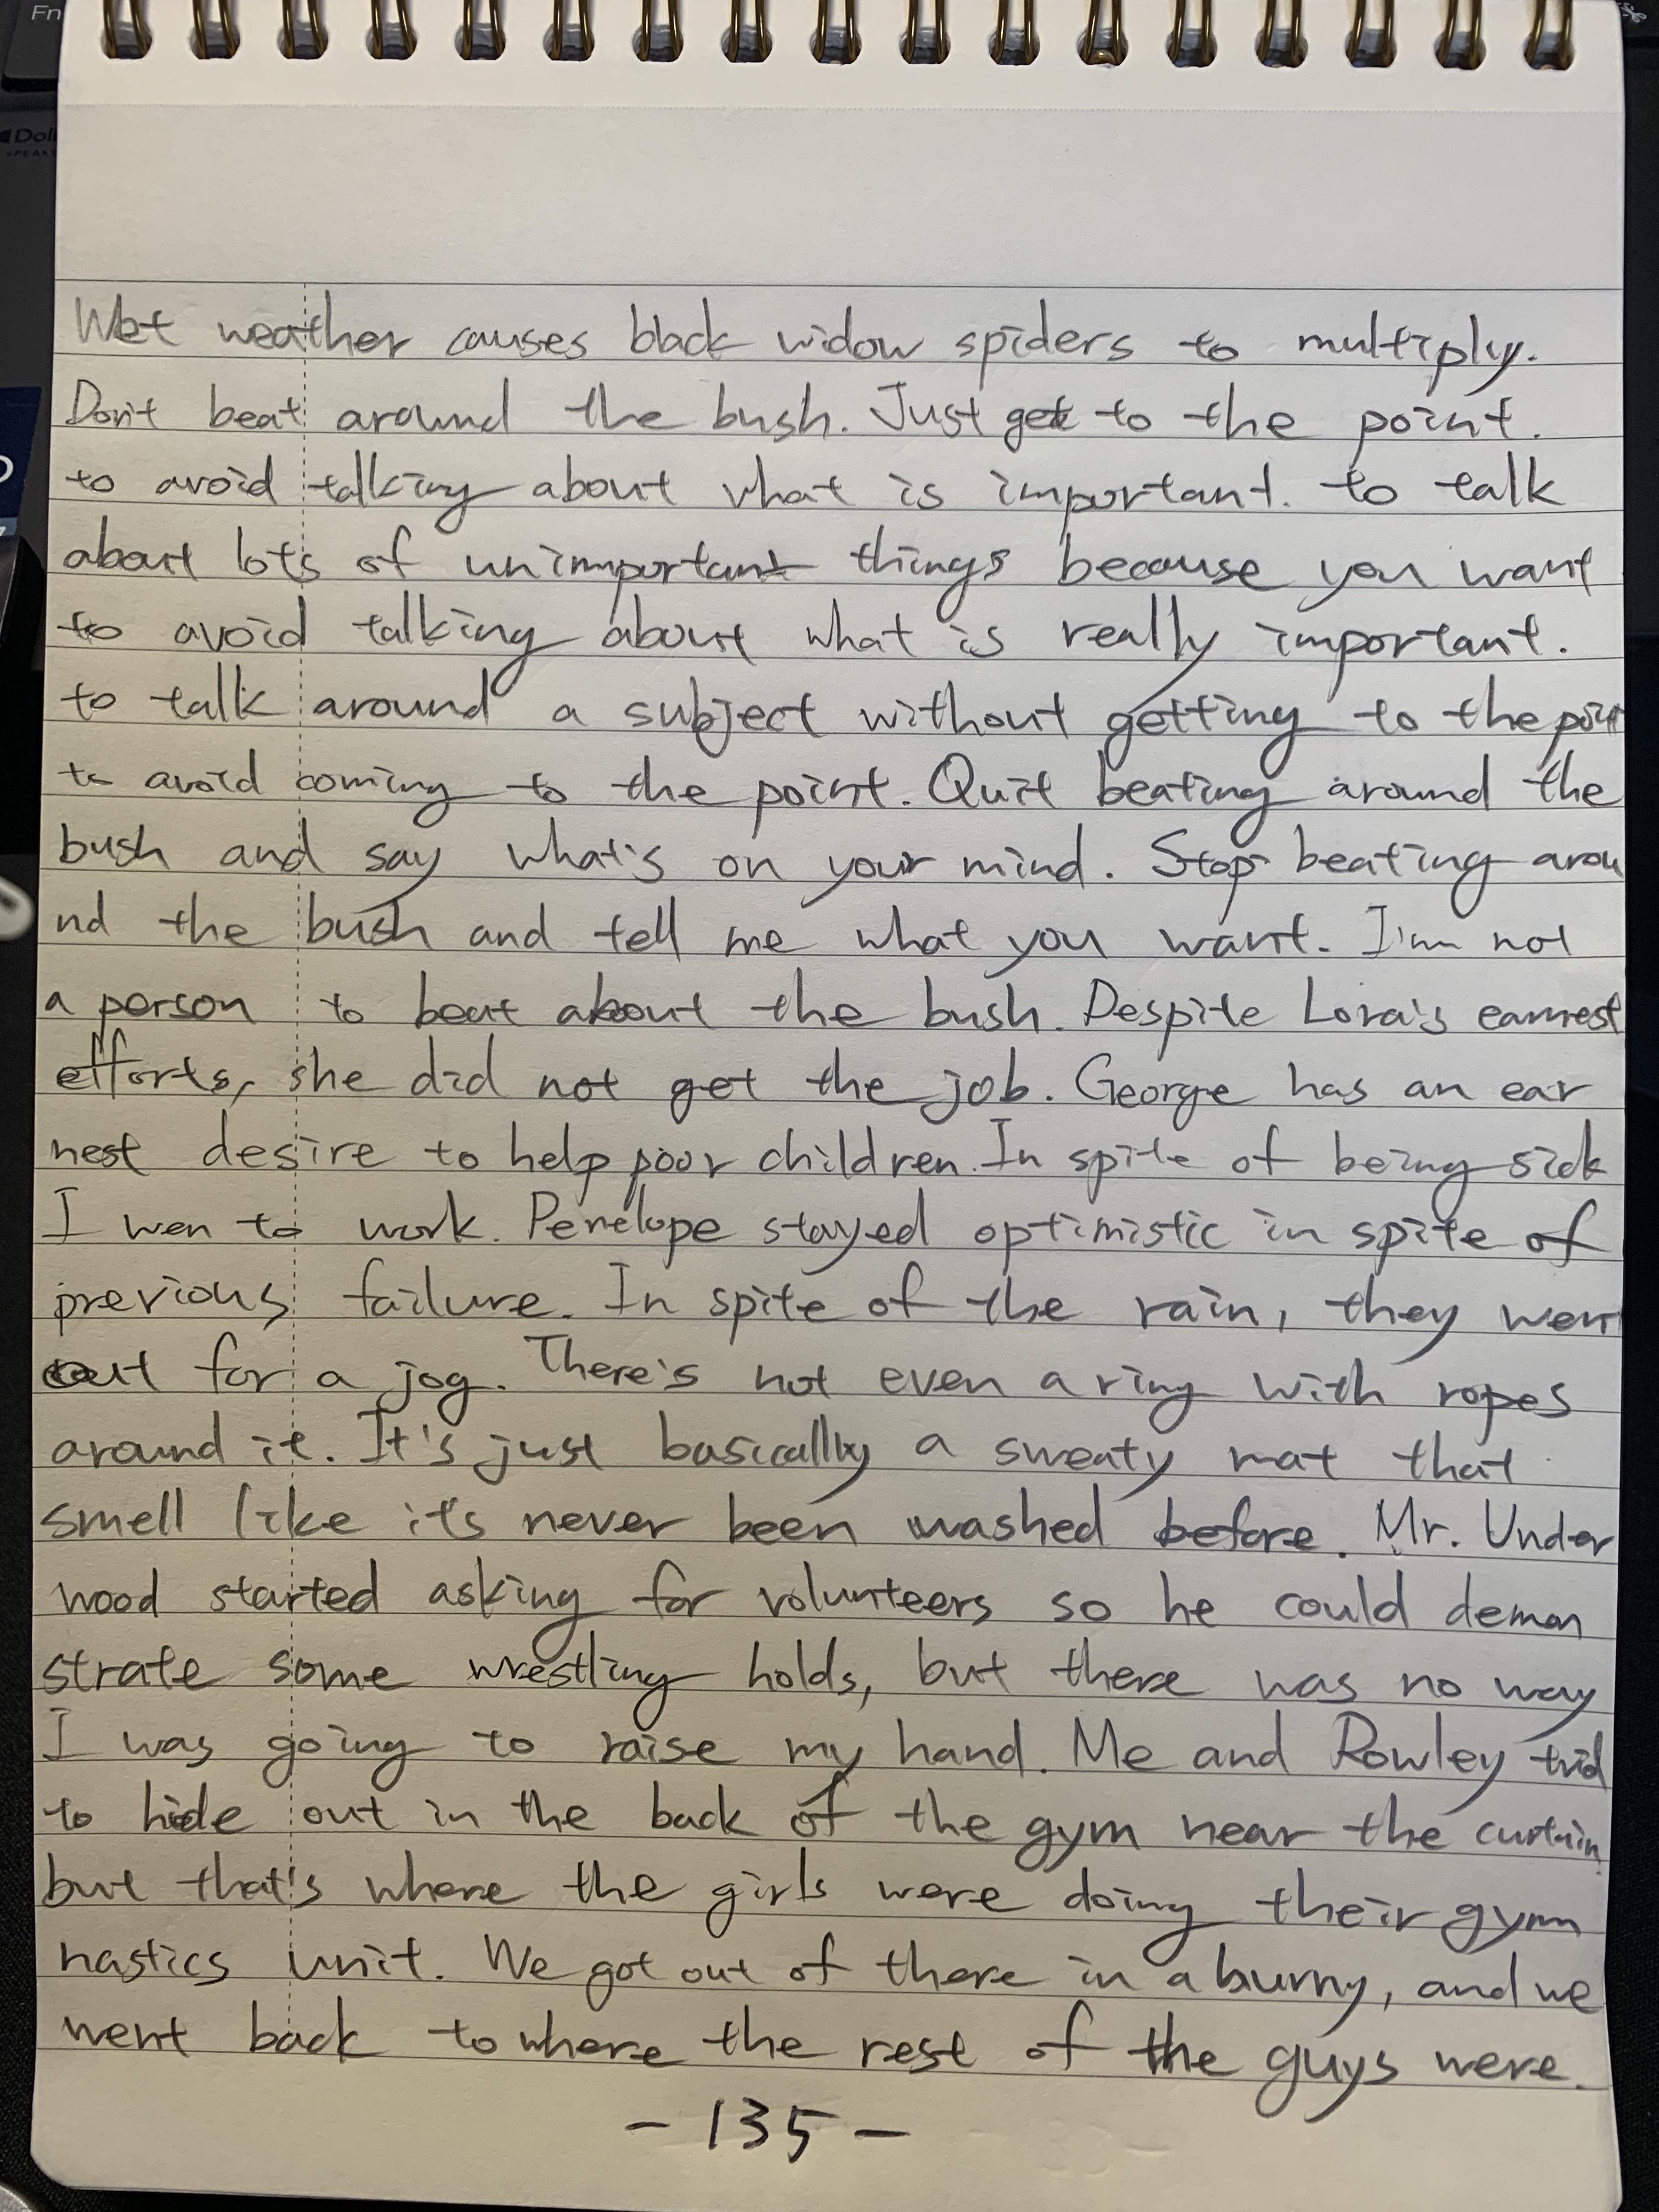 Fn
Wet weather causes black widow spiders to multiply.
Don't beat around the bush. Just get to the point.
to avoid talking about what is important. to talk
about lots of unimportant things because you want
to avoid talking about what is really important.
to talk around a subject without getting to the point
to avoid coming to the point. Quit beating around the
bush and say what's on your mind. Stop beating arou
nd the bush and tell me what you want. I'm not
a person to beat about the bush. Despite Lora's earnest
efforts, she did not get the job. George has an ear
nest desire to help poor children. In spite of being sick
I wen to work. Penelope stayed optimistic in spite of
previous failure. In spite of the rain, they went
out for a jog. There's not even a ring with ropes
around it. It's just basically a sweaty mat that
smell like it's never been washed before. Mr. Under
wood started asking for volunteers so he could demon
strate some wrestling holds, but there was no way
I was going to raise my hand. Me and Rowley trid
to hide out in the back of the gym near the curtain,
but that's where the girls were doing their gym
nastics unit. We got out of there in a hurry, and we
went back to where the rest of the guys were.
- 135 -